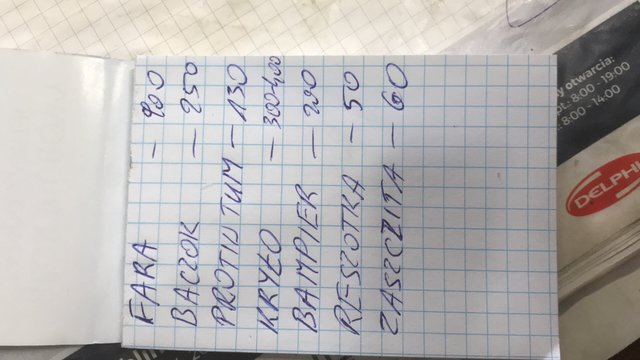 FARA — 200
BACZOK — 250
PROTIVTUM — 130
KRYŁO — 300-400
BAMPIER — 200
RESZOTKA — 50
ZASZCZITA — 60
otwarcia:
8:00 - 19:00
8:00 - 14:00
DELPHI